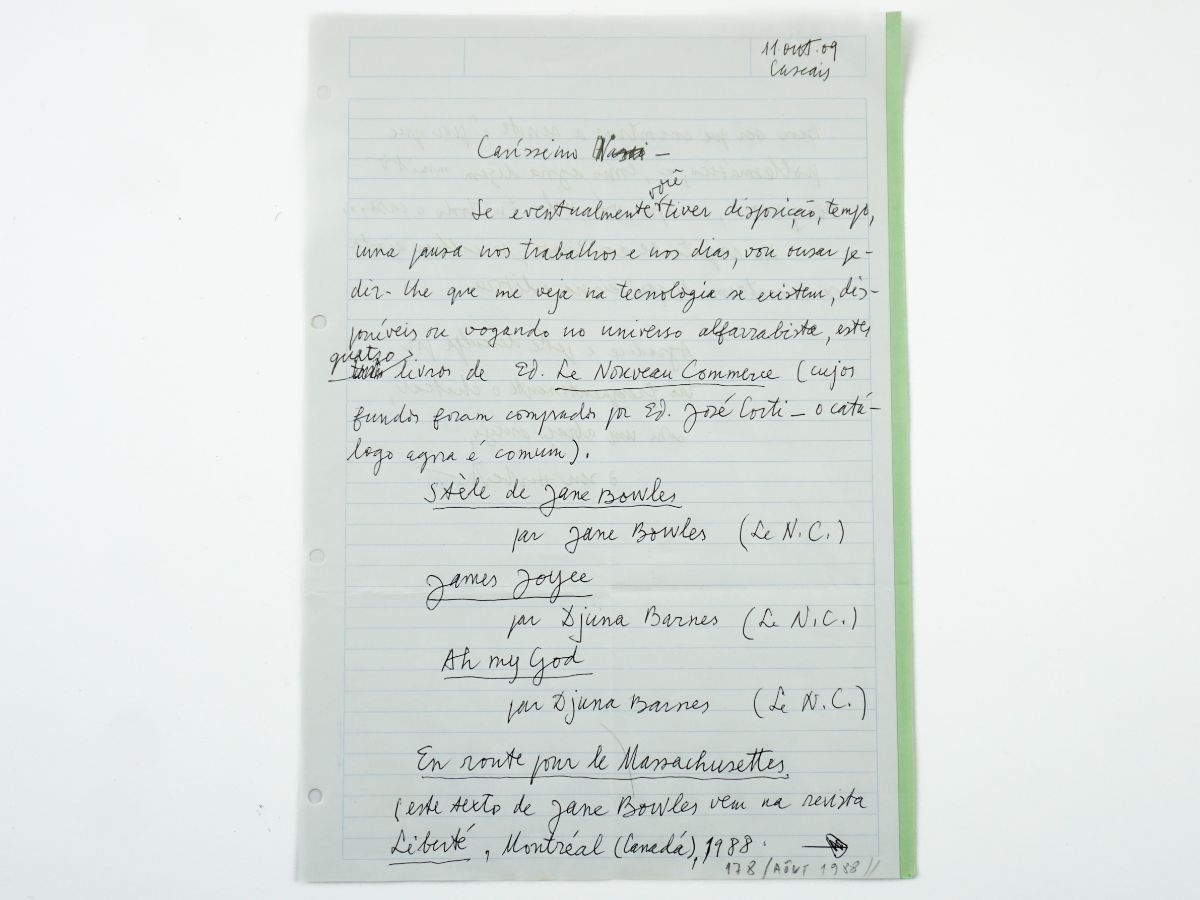 11 out. 09
Cascais
Caríssimo
você
Se eventualmente tiver disposição, tempo,
uma pausa nos trabalhos e nos dias, vou ousar pe-
dir-lhe que me veja na tecnologia se existem, dis-
poníveis ou vogando no universo alfarrabista, estes
quatro
livros de Ed. Le Nouveau Commerce (cujos
fundos foram comprados por Ed. José Corti – o catá-
logo agora é comum).
Stèle de Jane Bowles
par Jane Bowles (Le N.C.)
James Joyce
par Djuna Barnes (Le N.C.)
Ah my God
par Djuna Barnes (Le N.C.)
En route pour le Massachusettes
(este texto de Jane Bowles vem na revista
Liberté, Montréal (Canadá), 1988.
178 / AÔUT 1988 //